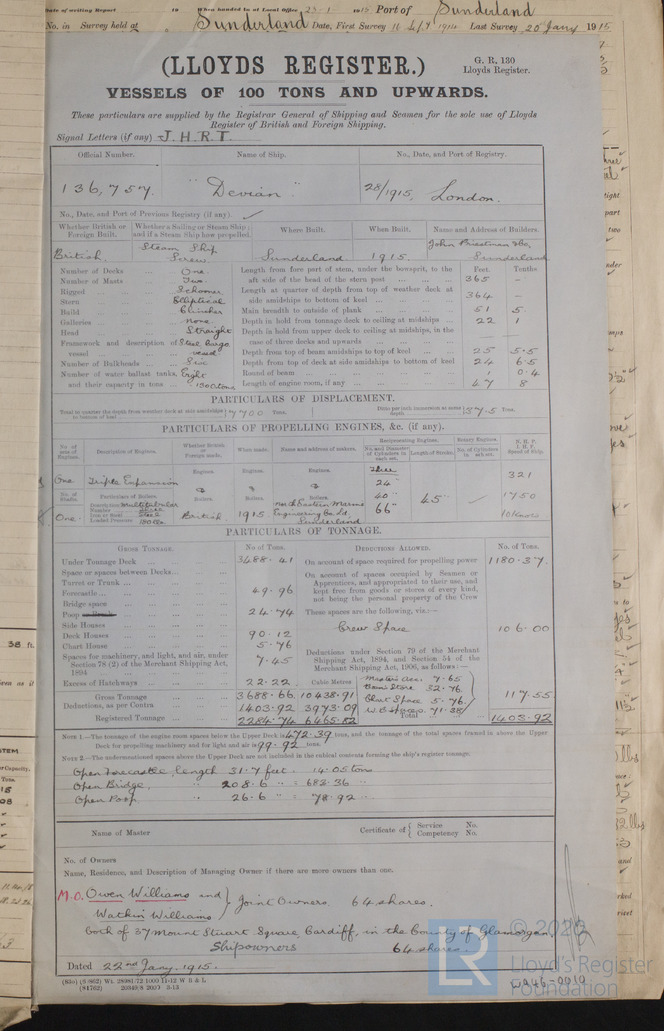 Date of writing Report 19 When handed in at Local Office 23.1.1915 Port of Sunderland
No. in Survey held at Sunderland Date, First Survey Last Survey 20 Jany 1915
(LLOYDS REGISTER.)
G. R. 130
Lloyds Register.
VESSELS OF 100 TONS AND UPWARDS.
These particulars are supplied by the Registrar General of Shipping and Seamen for the sole use of Lloyds
Register of British and Foreign Shipping.
Signal Letters (if any) J.H.R.T.
Official Number. Name of Ship. No., Date, and Port of Registry.
136,757. "Devian" 28/1915, London.
No., Date, and Port of Previous Registry (if any).
Whether British or Foreign Built. Whether a Sailing or Steam Ship; and if a Steam Ship how propelled. Where Built. When Built. Name and Address of Builders.
British. Steam Ship Screw Sunderland 1915. John Priestman & Co, Sunderland
Number of Decks One. Length from fore part of stem, under the bowsprit, to the aft side of the head of the stern post Feet. Tenths
365 –
Number of Masts Two.
Rigged Schooner Length at quarter of depth from top of weather deck at side amidships to bottom of keel 364 –
Stern Elliptical
Build Clincher Main breadth to outside of plank 51 5.
Galleries none. Depth in hold from tonnage deck to ceiling at midships 22 1
Head Straight Depth in hold from upper deck to ceiling at midships, in the case of three decks and upwards
Framework and description of vessel Steel Cargo vessel Depth from top of beam amidships to top of keel 25 5.5
Number of Bulkheads Six Depth from top of deck at side amidships to bottom of keel 24 6.5
Number of water ballast tanks, Eight Round of beam 1 0.4
and their capacity in tons 1300 tons Length of engine room, if any 47 8
PARTICULARS OF DISPLACEMENT.
Total to quarter the depth from weather deck at side amidships to bottom of keel 7700 Tons. Ditto per inch immersion at same depth 37.5 Tons.
PARTICULARS OF PROPELLING ENGINES, &c. (if any).
No. of sets of Engines. Description of Engines. Whether British or Foreign made. When made. Name and address of makers. Reciprocating Engines. Rotary Engines. N.H.P. I.H.P. Speed of Ship.
No. and Diameter of Cylinders in each set. Length of Stroke. No. of Cylinders in each set.
Engines. Engines. Engines. Three
One Triple Expansion 24" 321
No. of Shafts. Particulars of Boilers. Boilers. Boilers. Boilers. 40" 45" 1750
Description Multitubular North Eastern Marine 66"
Number Three
One. Iron or Steel Steel British 1915 Engineering Co Ld 10 Knots
Loaded Pressure 180 lbs Sunderland
PARTICULARS OF TONNAGE.
GROSS TONNAGE. No of Tons. DEDUCTIONS ALLOWED. No. of Tons.
Under Tonnage Deck 3488.41 On account of space required for propelling power 1180.37
Space or spaces between Decks On account of spaces occupied by Seamen or
Turret or Trunk Apprentices, and appropriated to their use, and
Forecastle 49.96 kept free from goods or stores of every kind,
Bridge space not being the personal property of the Crew
Poop 24.74 These spaces are the following, viz.:—
Side Houses Crew Space 106.00
Deck Houses 90.12
Chart House 5.76 Deductions under Section 79 of the Merchant
Spaces for machinery, and light, and air, under Section 78 (2) of the Merchant Shipping Act, 1894 7.45 Shipping Act, 1894, and Section 54 of the Merchant Shipping Act, 1906, as follows:—
Excess of Hatchways 22.22 Cubic Metres Master's Acc. 7.65
Gross Tonnage 3688.66 10438.91 Store 32.76
Deductions, as per Contra 1403.92 3973.09 Chart Space 5.76. 117.55
Registered Tonnage 2284.74 6465.82 W.B. spaces 71.38 Total 1403.92
NOTE 1.—The tonnage of the engine room spaces below the Upper Deck is 472.39 tons, and the tonnage of the total spaces framed in above the Upper
Deck for propelling machinery and for light and air is 99.92 tons.
NOTE 2.—The undermentioned spaces above the Upper Deck are not included in the cubical contents forming the ship's register tonnage.
Open Forecastle length 31.7 feet = 14.05 tons
Open Bridge, " 208.6 " = 683.36
Open Poop " 26.6 " = 78.92 "
Name of Master Certificate of { Service No. Competency No.
No. of Owners
Name, Residence, and Description of Managing Owner if there are more owners than one.
M.O. Owen Williams and } Joint Owners. 64 shares.
Watkin Williams
both of 37 Mount Stuart Square Cardiff, in the County of Glamorgan,
Shipowners 64 shares.
Dated 22nd Jany. 1915.
W946-0010
© 2020
LR
Lloyd's Register
Foundation